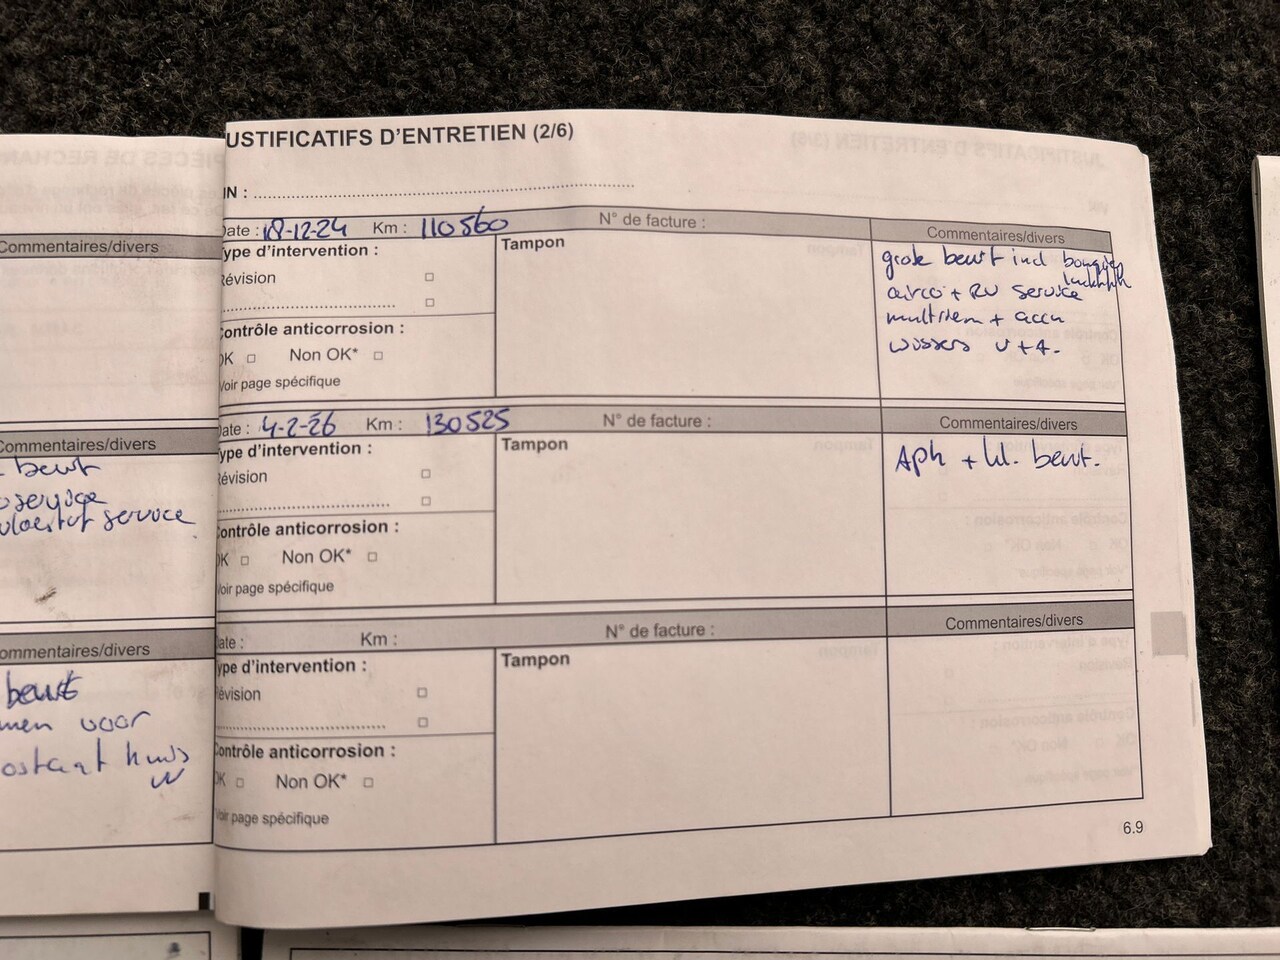 Commentaires/divers
Commentaires/divers
beurt
service
service
ommentaires/divers
beurt
men voor
ostaat huis
USTIFICATIFS D'ENTRETIEN (2/6)
IN :
Date : 18-12-24 Km : 110560 N° de facture :
Commentaires/divers
ype d'intervention :
Tampon
grote beurt incl bougies
luchtfilt
airco + RV service
multiriem + accu
wissers V+A.
Révision
Contrôle anticorrosion :
OK Non OK*
Voir page spécifique
Date : 4-2-26 Km : 130525 N° de facture :
Commentaires/divers
ype d'intervention :
Tampon
APK + kl. beurt.
Révision
Contrôle anticorrosion :
OK Non OK*
Voir page spécifique
ate : Km : N° de facture :
Commentaires/divers
ype d'intervention :
Tampon
évision
Contrôle anticorrosion :
OK Non OK*
oir page spécifique
6.9